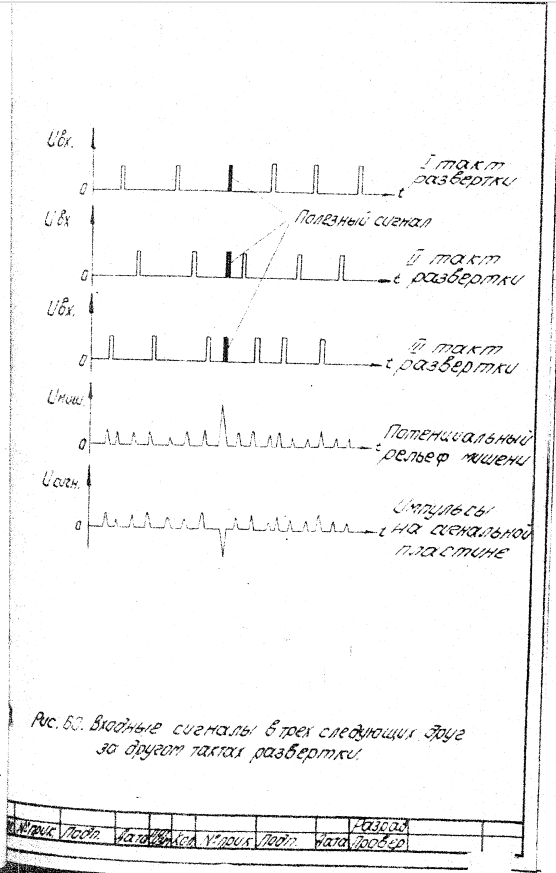 Uвх.
I такт
развертки
0
t
Полезный сигнал
Uвх
II такт
развертки
0
t
Uвх.
III такт
развертки
0
t
Uмиш.
Потенциальный
рельеф мишени
0
t
Uсигн.
Импульсы
на сигнальной
пластине
0
t
Рис. 60. Входные сигналы в трех следующих друг
за другом тактах развертки.
Разраб
№ прик Подп. Дата Кол. № прик Подп. Дата Провер